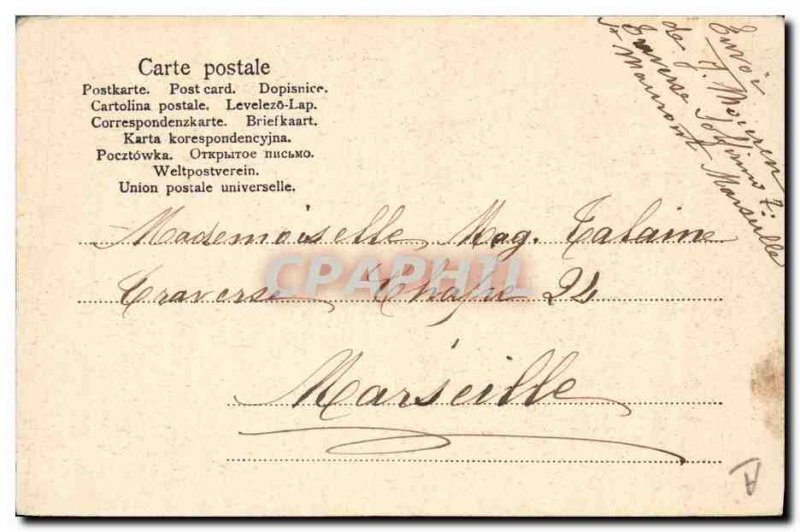 Carte postale
Postkarte. Post card. Dopisnice.
Cartolina postale. Levelező-Lap.
Correspondenzkarte. Briefkaart.
Karta korespondencyjna.
Pocztówka. Открытое письмо.
Weltpostverein.
Union postale universelle.
Envoi
de J.
Traverse
St Mauront Marseille
Mademoiselle Mag. Talaine
Traverse Chape 24
CPAPHIL
Marseille
A